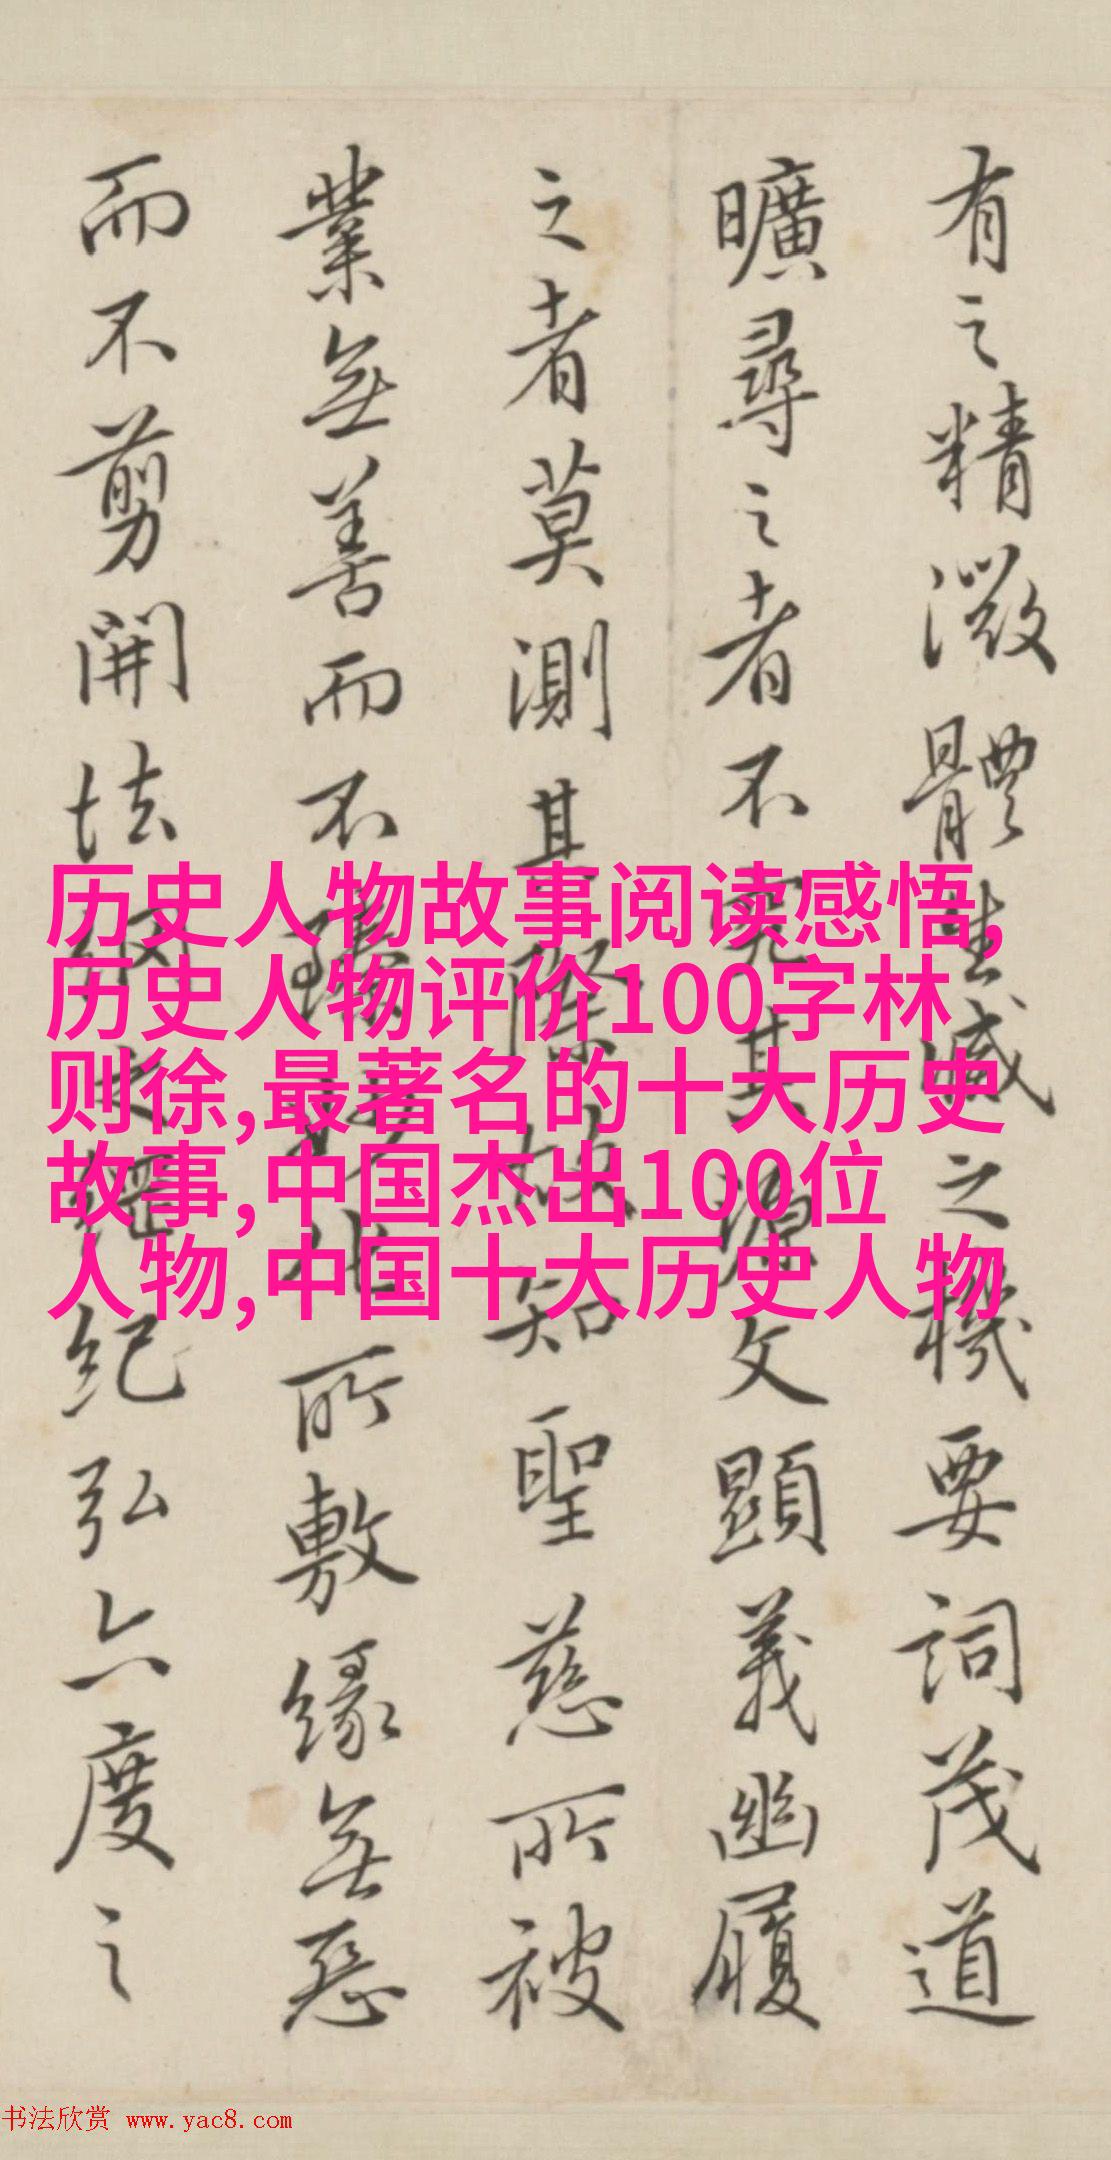 有之精微體生滅之機要詞茂道
曠尋之者不究其源文顯義幽履
之者莫測其際故知聖慈所被
業無善而不臻妙化所敷緣無惡
而不剪開法網之綱紀弘六度之
历史人物故事阅读感悟,
历史人物评价100字林
则徐,最著名的十大历史
故事,中国杰出100位
人物,中国十大历史人物
书法欣赏 www.yac8.com